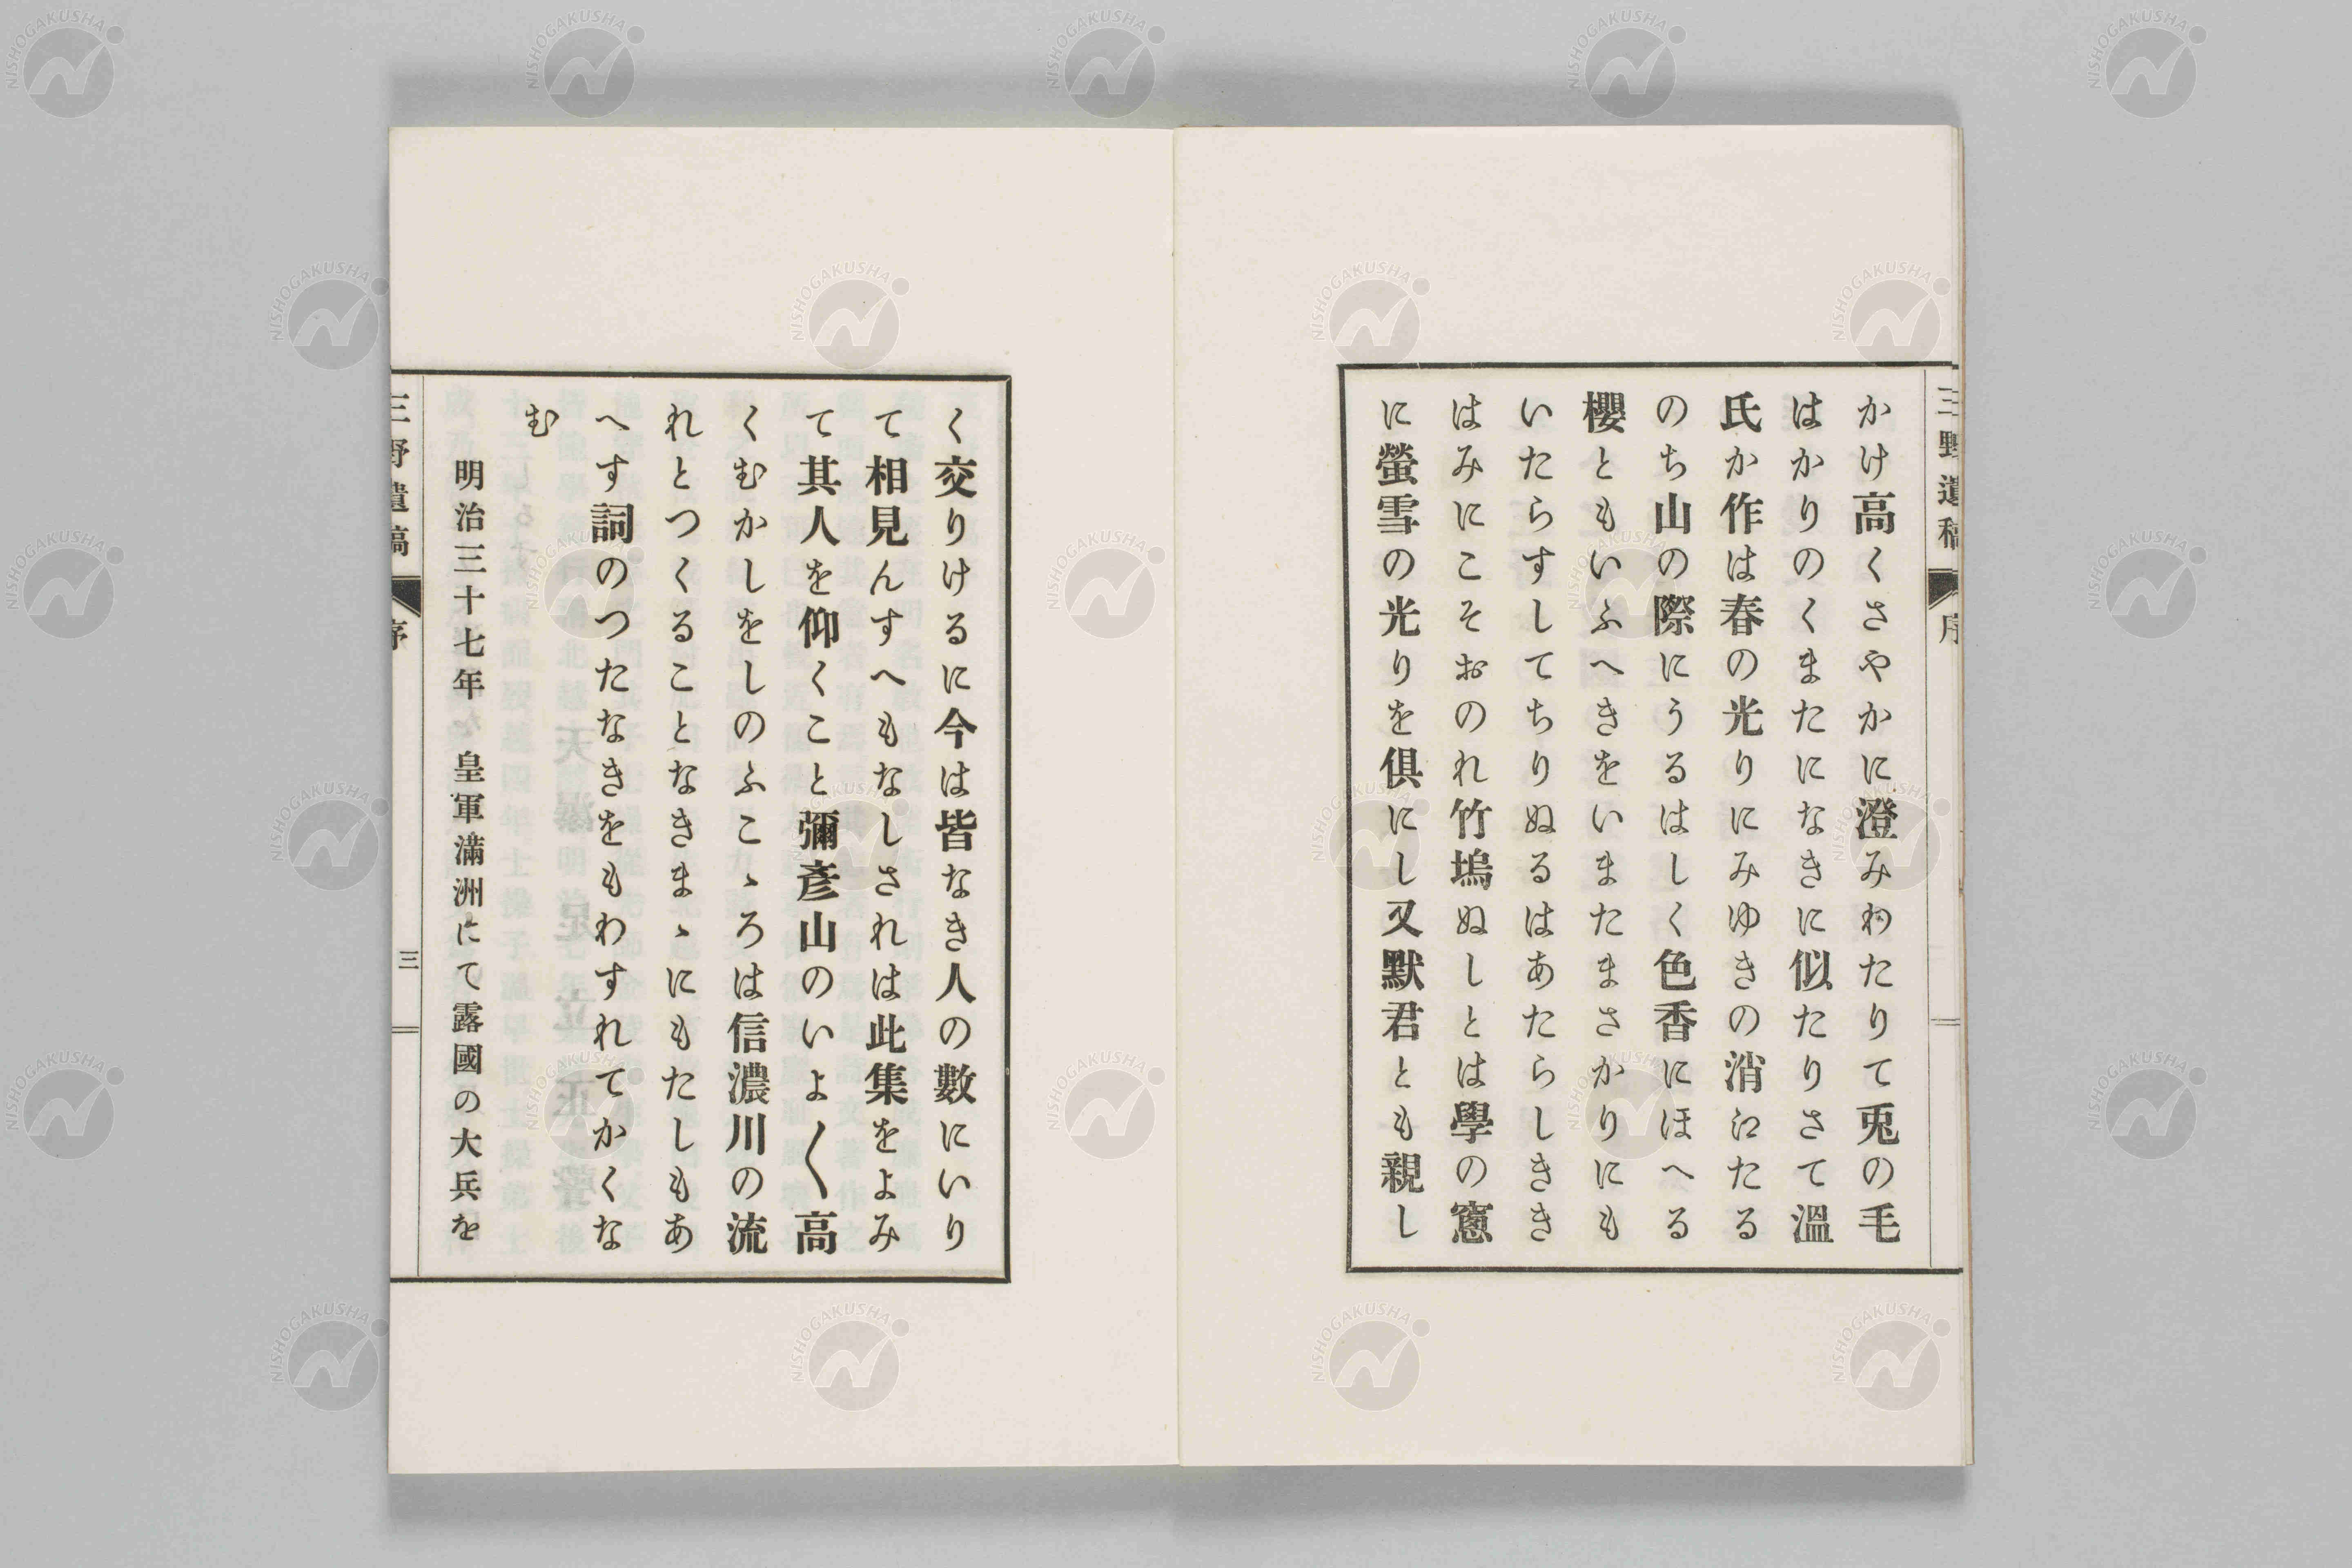 三野遺稿 序
かけ高くさやかに澄みわたりて兎の毛
はかりのくまたになきに似たりさて溫
氏か作は春の光りにみゆきの消江たる
のち山の際にうるはしく色香にほへる
櫻ともいふへきをいまたまさかりにも
いたらすしてちりぬるはあたらしきき
はみにこそおのれ竹塢ぬしとは學の窻
に螢雪の光りを俱にし又默君とも親し
く交りけるに今は皆なき人の數にいり
て相見んすへもなしされは此集をよみ
て其人を仰くこと彌彥山のいよ〱高
くむかしをしのふこゝろは信濃川の流
れとつくることなきまゝにもたしもあ
へす詞のつたなきをもわすれてかくな
む
明治三十七年 皇軍滿洲にて露國の大兵を
三野遺稿 序 三
NISHOGAKUSHA